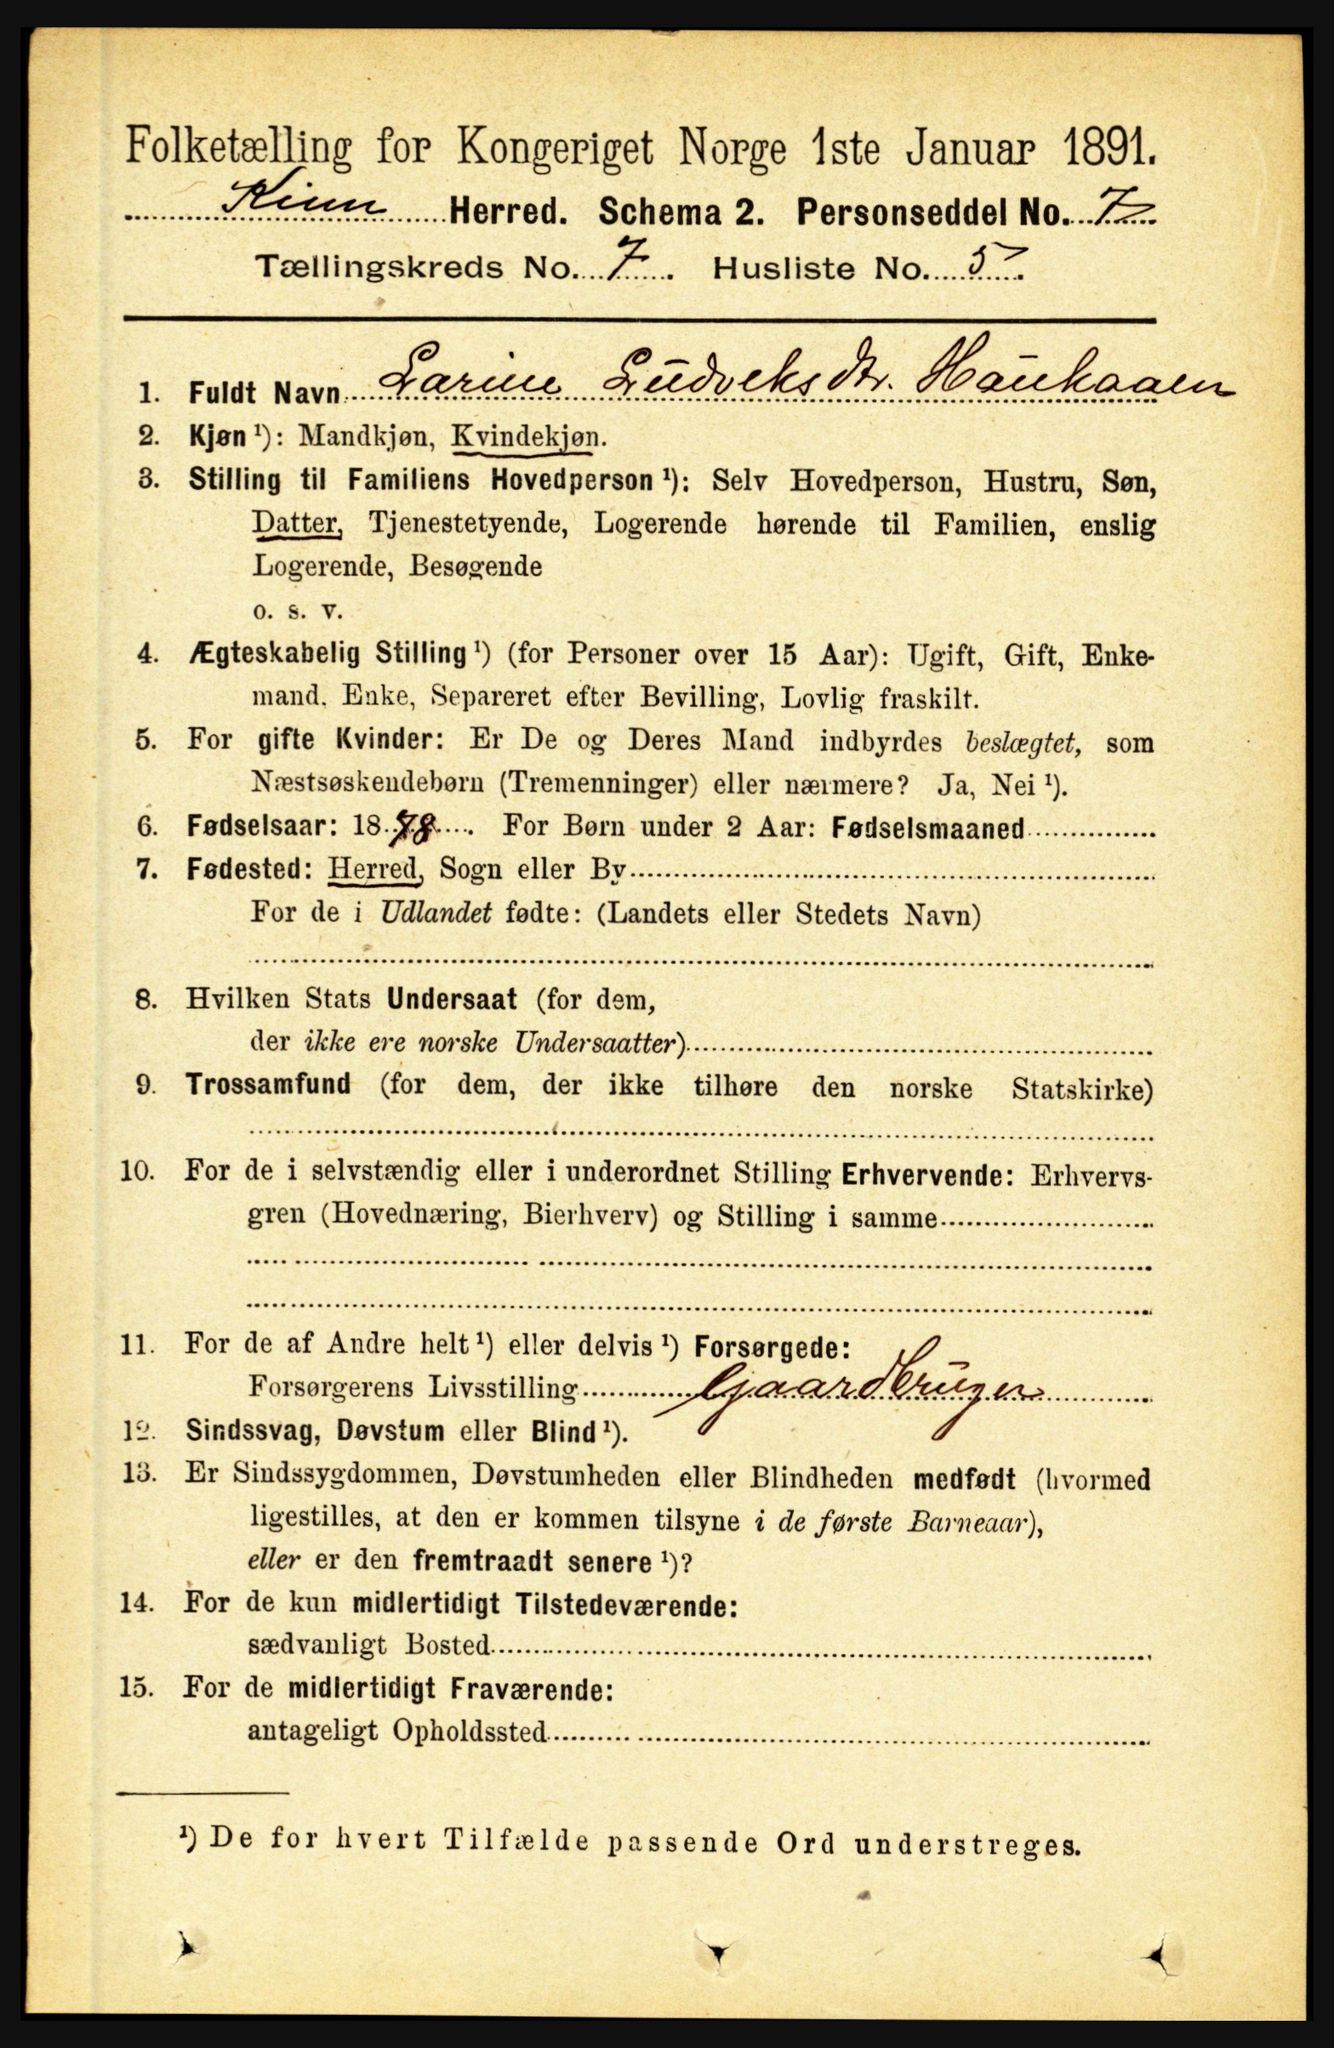 Folketælling for Kongeriget Norge 1ste Januar 1891.
Kinn Herred. Schema 2. Personseddel No. 7
Tællingskreds No. 7. Husliste No. 5.
1. Fuldt Navn Larine Ludveksdtr. Haukaaen
2. Kjøn ¹): Mandkjøn, Kvindekjøn.
3. Stilling til Familiens Hovedperson ¹): Selv Hovedperson, Hustru, Søn,
Datter, Tjenestetyende, Logerende hørende til Familien, enslig
Logerende, Besøgende
o. s. v.
4. Ægteskabelig Stilling ¹) (for Personer over 15 Aar): Ugift, Gift, Enke-
mand, Enke, Separeret efter Bevilling, Lovlig fraskilt.
5. For gifte Kvinder: Er De og Deres Mand indbyrdes beslægtet, som
Næstsøskendebørn (Tremenninger) eller nærmere? Ja, Nei ¹).
6. Fødselsaar: 1878. For Børn under 2 Aar: Fødselsmaaned
7. Fødested: Herred, Sogn eller By
For de i Udlandet fødte: (Landets eller Stedets Navn)
8. Hvilken Stats Undersaat (for dem,
der ikke ere norske Undersaatter)
9. Trossamfund (for dem, der ikke tilhøre den norske Statskirke)
10. For de i selvstændig eller i underordnet Stilling Erhvervende: Erhvervs-
gren (Hovednæring, Bierhverv) og Stilling i samme
11. For de af Andre helt ¹) eller delvis ¹) Forsørgede:
Forsørgerens Livsstilling Gaardbruger
12. Sindssvag, Døvstum eller Blind ¹).
13. Er Sindssygdommen, Døvstumheden eller Blindheden medfødt (hvormed
ligestilles, at den er kommen tilsyne i de første Barneaar),
eller er den fremtraadt senere ¹)?
14. For de kun midlertidigt Tilstedeværende:
sædvanligt Bosted
15. For de midlertidigt Fraværende:
antageligt Opholdssted
¹) De for hvert Tilfælde passende Ord understreges.